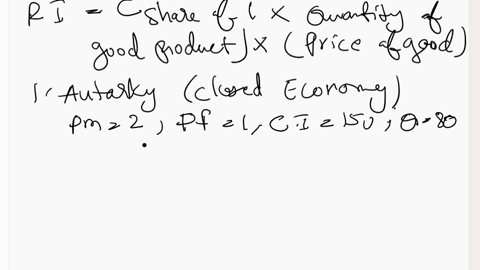 RI = (Share of L × Quantity of
good product) × (Price of good)
1, Autarky (Closed Economy)
Pm = 2, Pf = 1, C.I = 150, Q = 80